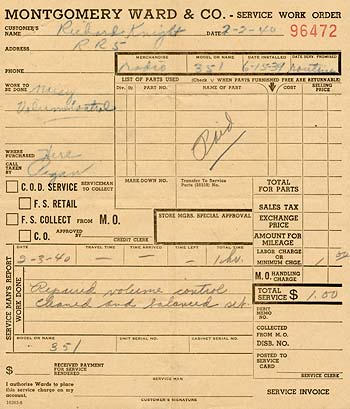 MONTGOMERY WARD & CO. - SERVICE WORK ORDER
CUSTOMER'S NAME Richard Knight DATE 2-2-40 96472
ADDRESS R R 5
PHONE MERCHANDISE radio MODEL OR NO. 351 DATE INSTALLED 6-15-39 DATE SERV. PROMISED
WORK TO BE DONE LIST OF PARTS USED (Check √ WHEN PARTS FURNISHED FREE ARE RETURNABLE)
Noisy Div. PART NO. NAME OF PART √ COST SELLING PRICE
Volume Control
Paid
WHERE PURCHASED Here
CALL TAKEN BY Ryan
MARK-DOWN NO. Transfer To Service Parts
TOTAL FOR PARTS
C.O.D. SERVICE SERVICEMAN TO COLLECT
F.S. RETAIL SALES TAX
F.S. COLLECT FROM M.O. STORE MGRS. SPECIAL APPROVAL EXCHANGE PRICE
C.O. APPROVED BY CREDIT CLERK AMOUNT FOR MILEAGE
SERVICE MAN'S REPORT
DATE TRAVEL TIME TIME ARRIVED TIME LEFT TOTAL TIME LABOR CHARGE OR MINIMUM CHGE. 1 00
2-3-40 — — — 1 hr. M.O. HANDLING CHARGE
WORK DONE TOTAL SERVICE $ 1.00
Repaired volume control
cleaned and balanced set. DEBIT MEMO NO.
MODEL OR NO. UNIT SERIAL NO. CABINET SERIAL NO. COLLECTED FROM M.O.
351 DISB. NO.
$ RECEIVED PAYMENT FOR SERVICE RENDERED POSTED TO SERVICE CARD
SERVICE MAN SERVICE CLERK
I authorize Wards to place this service charge on my account. SERVICE INVOICE
CUSTOMER'S SIGNATURE